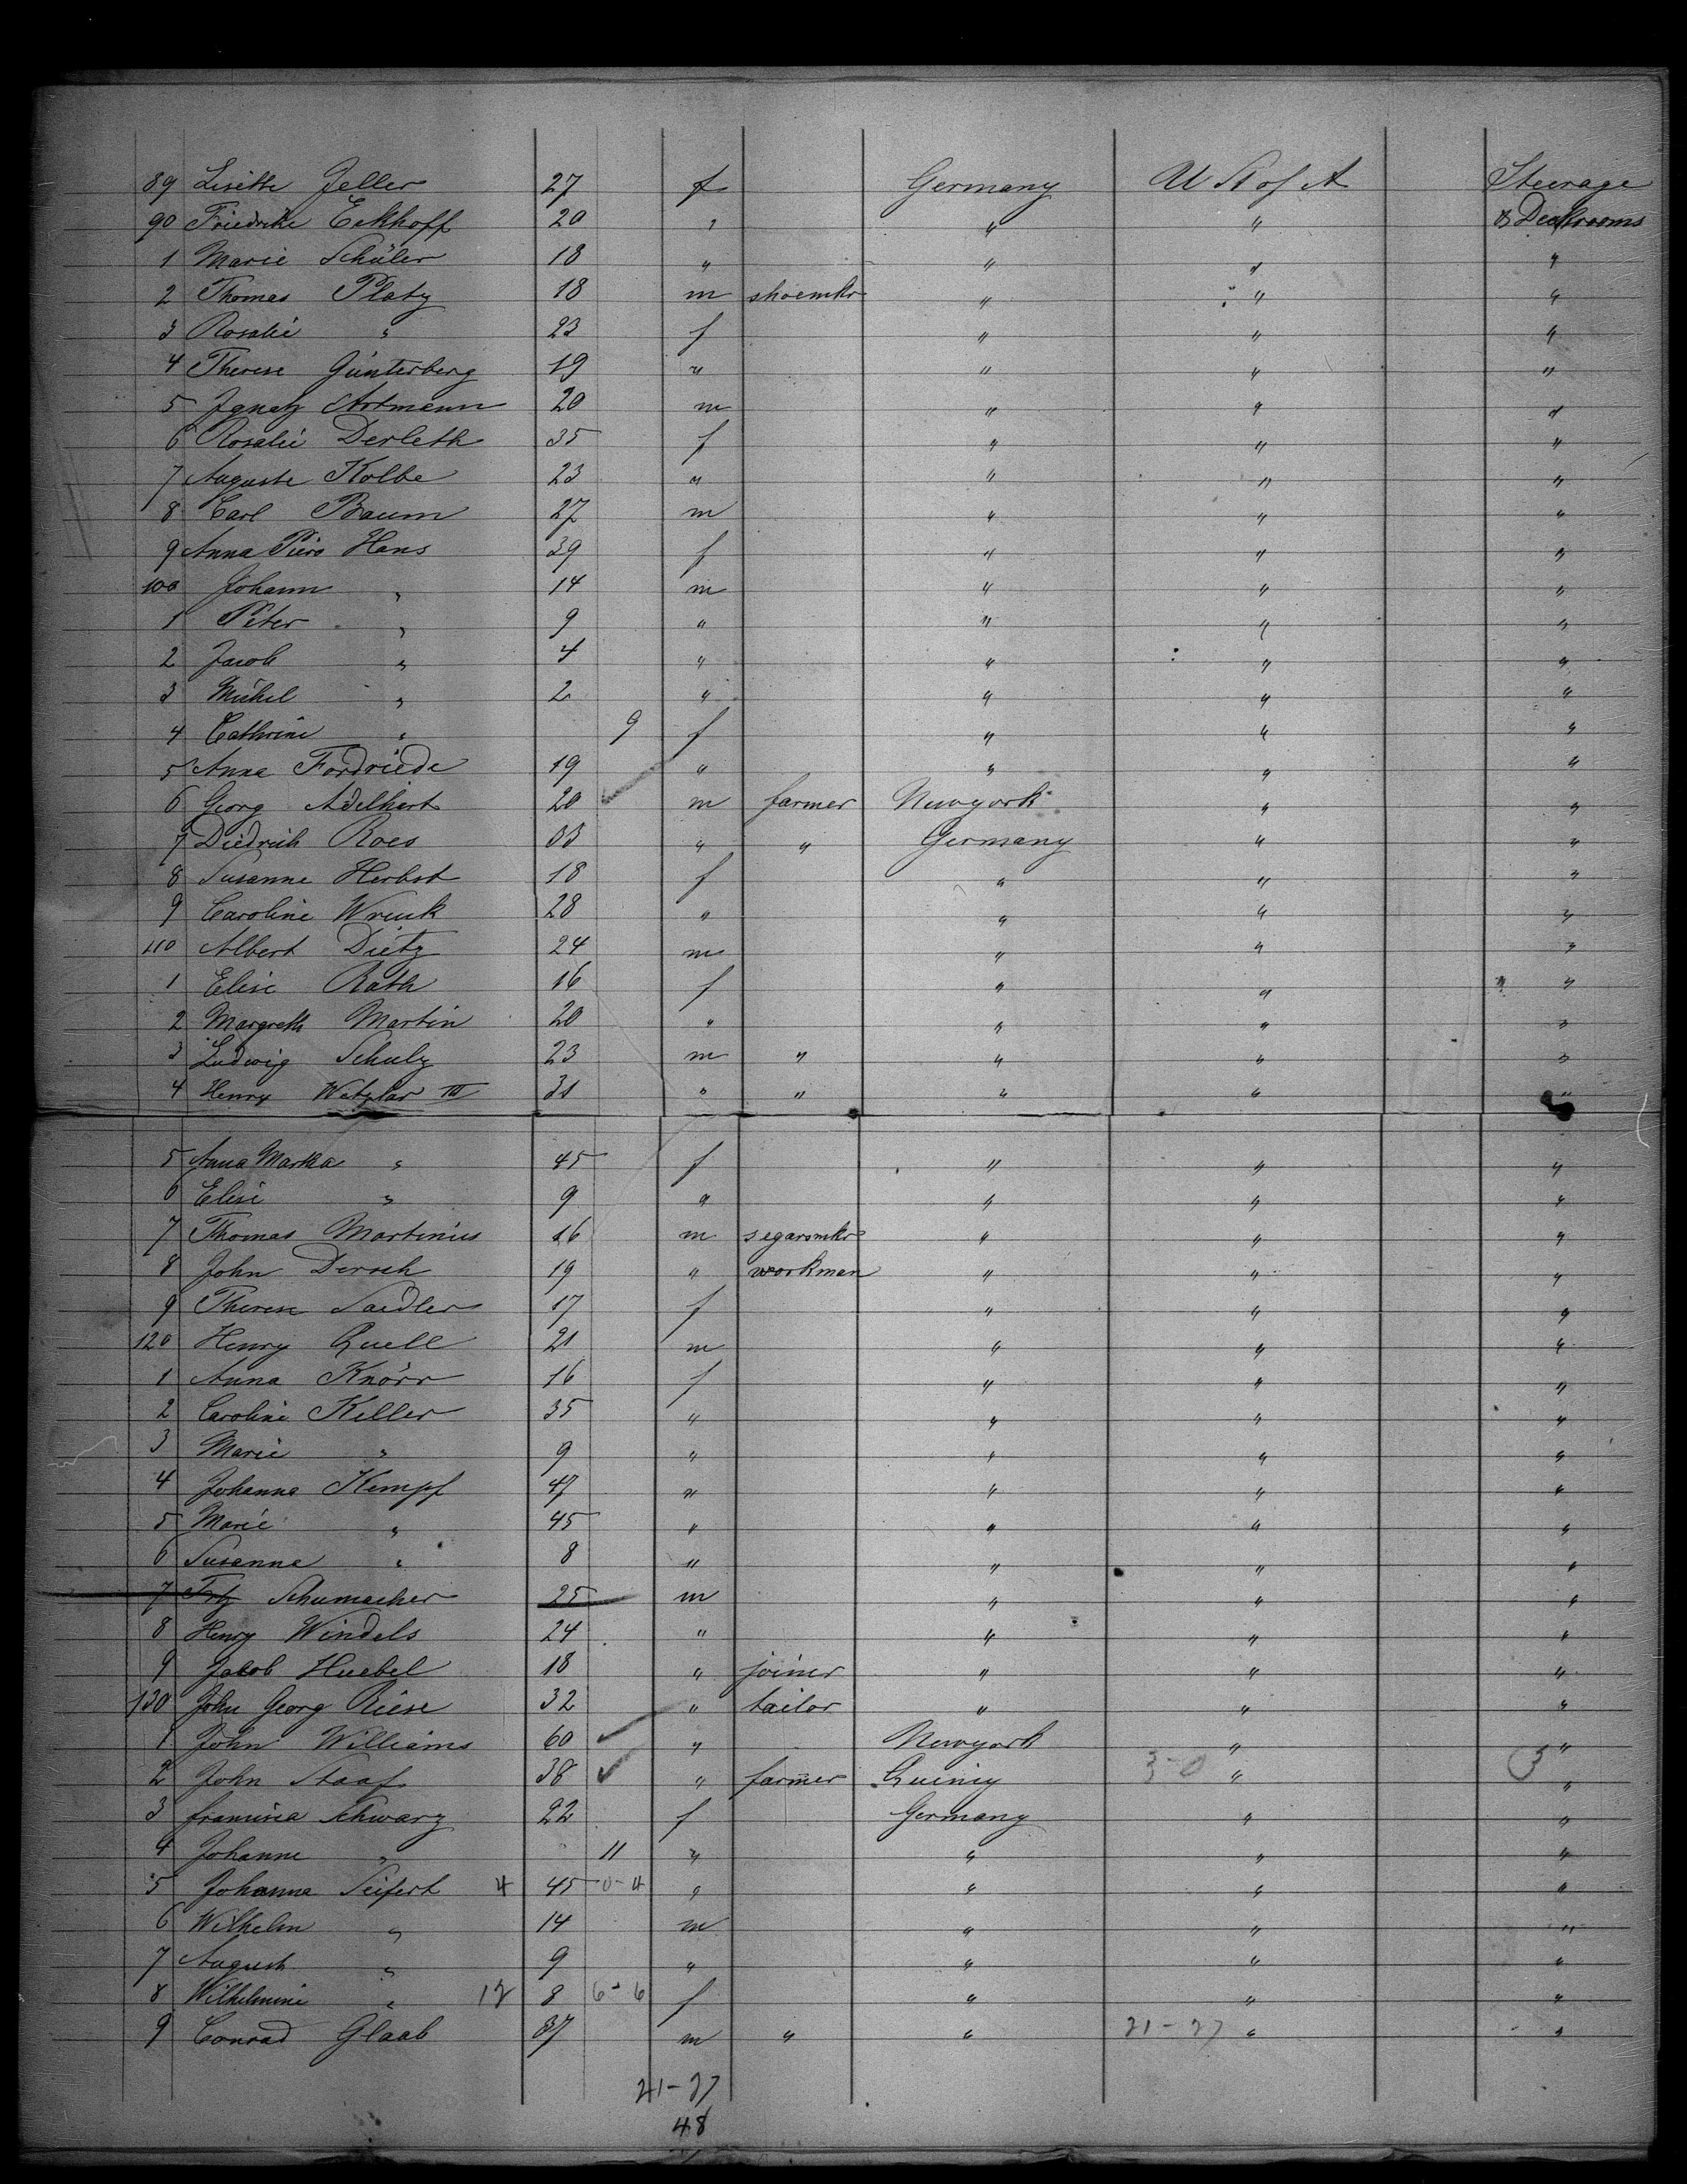 89 Lisette Zeller 27 f Germany U St of A Steerage
90 Friedrike Eckhoff 20 " " " & Deckrooms
1 Marie Schüler 18 " " " "
2 Thomas Platz 18 m shoemkr " " "
3 Rosalie " 23 f " " "
4 Therese Günterberg 19 " " " "
5 Ignatz Artmann 20 m " " "
6 Rosalie Derleth 35 f " " "
7 Auguste Kolbe 23 " " " "
8 Carl Baum 27 m " " "
9 Anna Hans 39 f " " "
100 Johann " 14 m " " "
1 Peter " 9 " " " "
2 Jacob " 4 " " " "
3 Michel " 2 " " " "
4 Cathrine " 9 f " " "
5 Anna Fordriede 19 " " " "
6 Georg Adelhert 20 m farmer Newyork " "
7 Diedrich Roes 33 " " Germany " "
8 Susanne Herbst 18 f " " "
9 Caroline Wrenk 28 " " " "
110 Albert Dietz 24 m " " "
1 Elise Rath 16 f " " "
2 Margreth Martin 20 " " " "
3 Ludwig Schulz 23 m " " " "
4 Henry Wetzlar III 31 " " " " "
5 Anna Martha " 45 f " " "
6 Elise " 9 " " " "
7 Thomas Martinius 16 m segarsmkr " " "
8 John Dersch 19 " workman " " "
9 Therese Saedler 17 f " " "
120 Henry Quell 21 m " " "
1 Anna Knörr 16 f " " "
2 Caroline Keller 35 " " " "
3 Marie " 9 " " " "
4 Johanna Kempf 47 " " " "
5 Marie " 45 " " " "
6 Susanna " 8 " " " "
7 Fritz Schumacher 25 m " " "
8 Henry Windels 24 " " " "
9 Jacob Huebel 18 " joiner " " "
130 John Georg Riese 32 " tailor " " "
1 John Williams 60 " Newyork " "
2 John Staaf 38 " farmer Quincy 3-0 " 3 "
3 Franziska Schwarz 22 f Germany " "
4 Johanne " 11 " " " "
5 Johanna Seifert 4 45 0-4 " " " "
6 Wilhelm " 14 m " " "
7 August " 9 " " " "
8 Wilhelmine " 12 8 6-6 f " " "
9 Conrad Glaab 37 m " " 21-27 " "
21-27
48